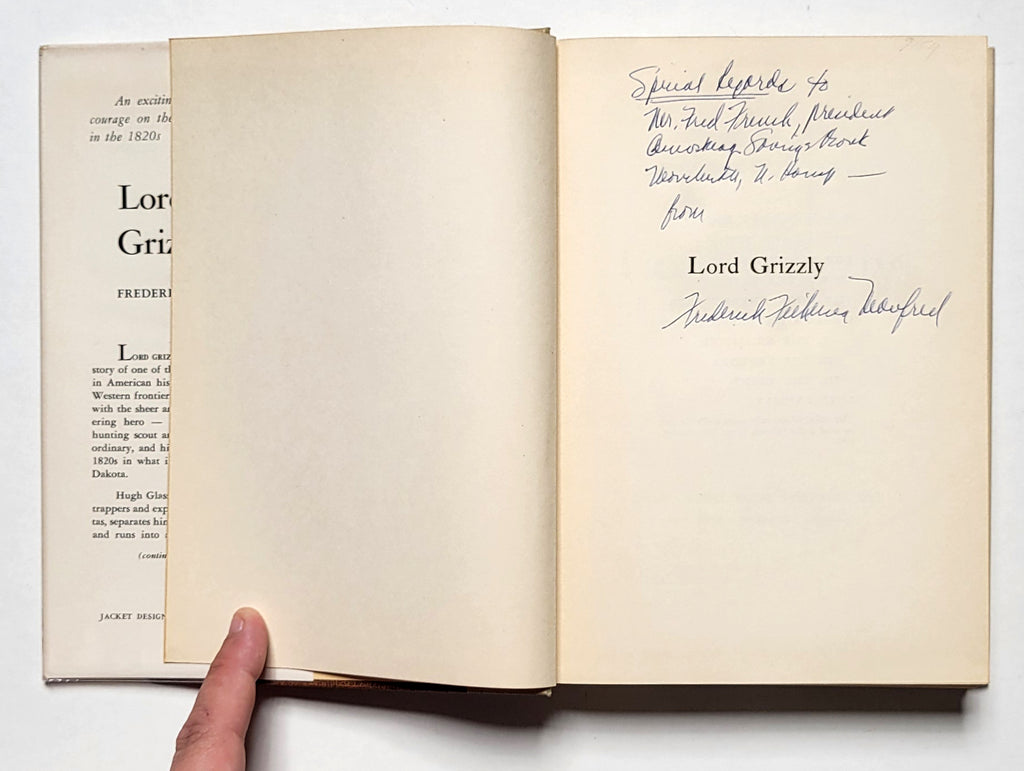 An excitin
courage on the
in the 1820s
Lor
Griz
FREDERI
LORD GRIZ
story of one of t
in American his
Western frontier
with the sheer a
ering hero —
hunting scout a
ordinary, and hi
1820s in what i
Dakota.
Hugh Glas
trappers and exp
tas, separates hin
and runs into
(contin
JACKET DESIGN
Special Regards to
Mr. Fred French, President
Amoskeag Savings Bank
Manchester, N. Hamp —
from
Lord Grizzly
Frederick Feikema Manfred